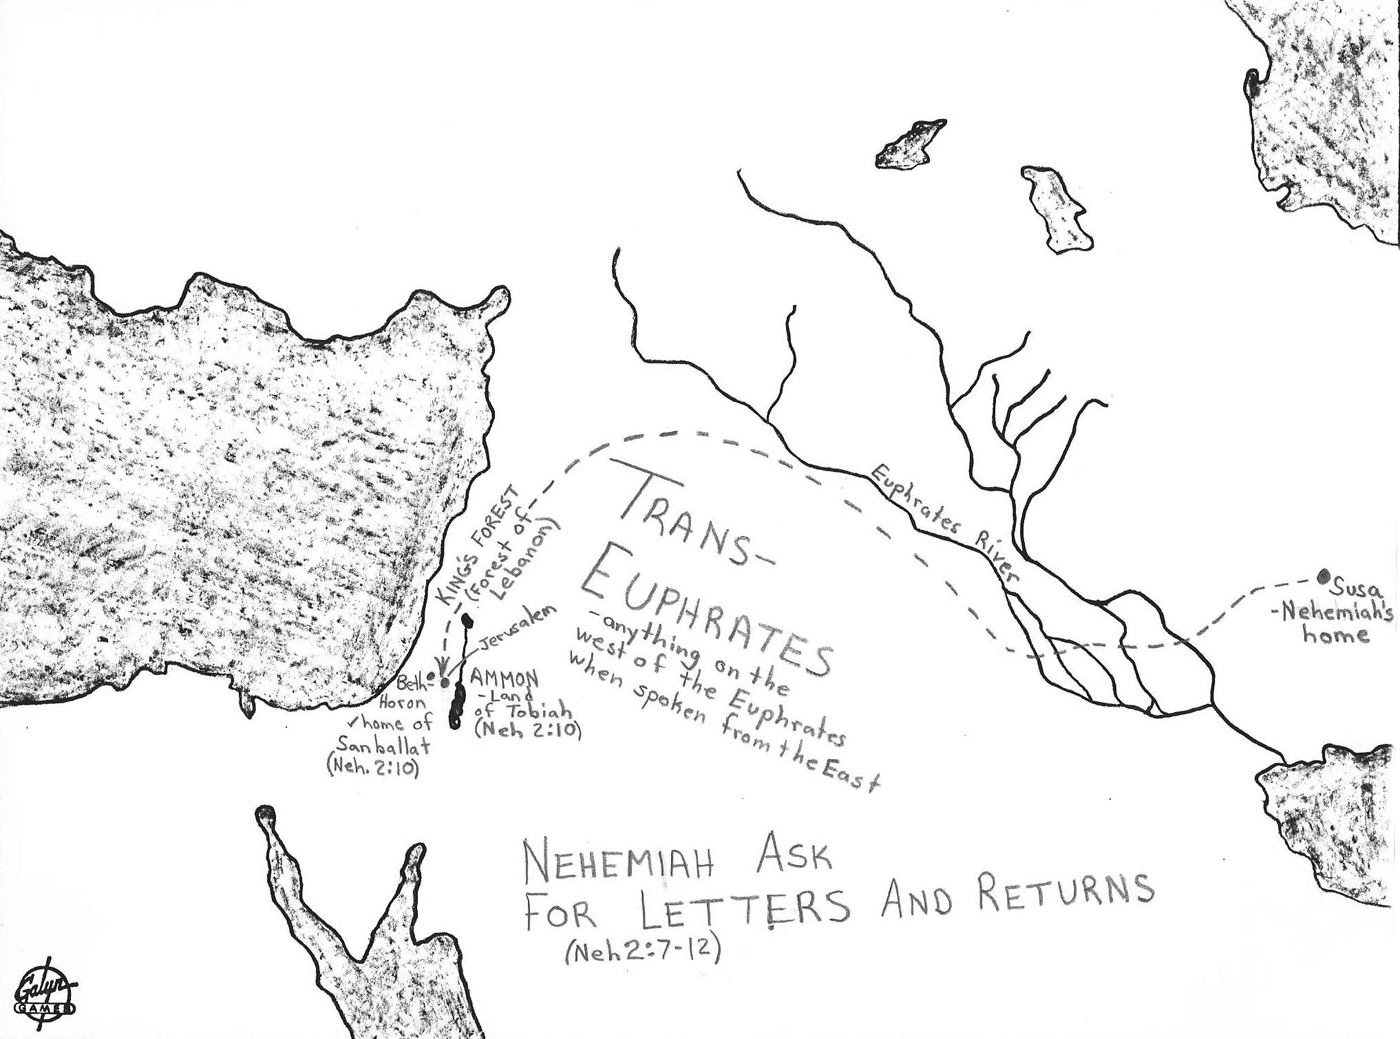 Euphrates River
TRANS-
EUPHRATES
-anything on the
west of the Euphrates
when spoken from the East
KING'S FOREST
(Forest of
Lebanon)
Jerusalem
Beth-
Horon
✓home of
Sanballat
(Neh. 2:10)
AMMON
-Land
of Tobiah
(Neh 2:10)
Susa
-Nehemiah's
home
NEHEMIAH ASK
FOR LETTERS AND RETURNS
(Neh 2:7-12)
Galyn
GAMES